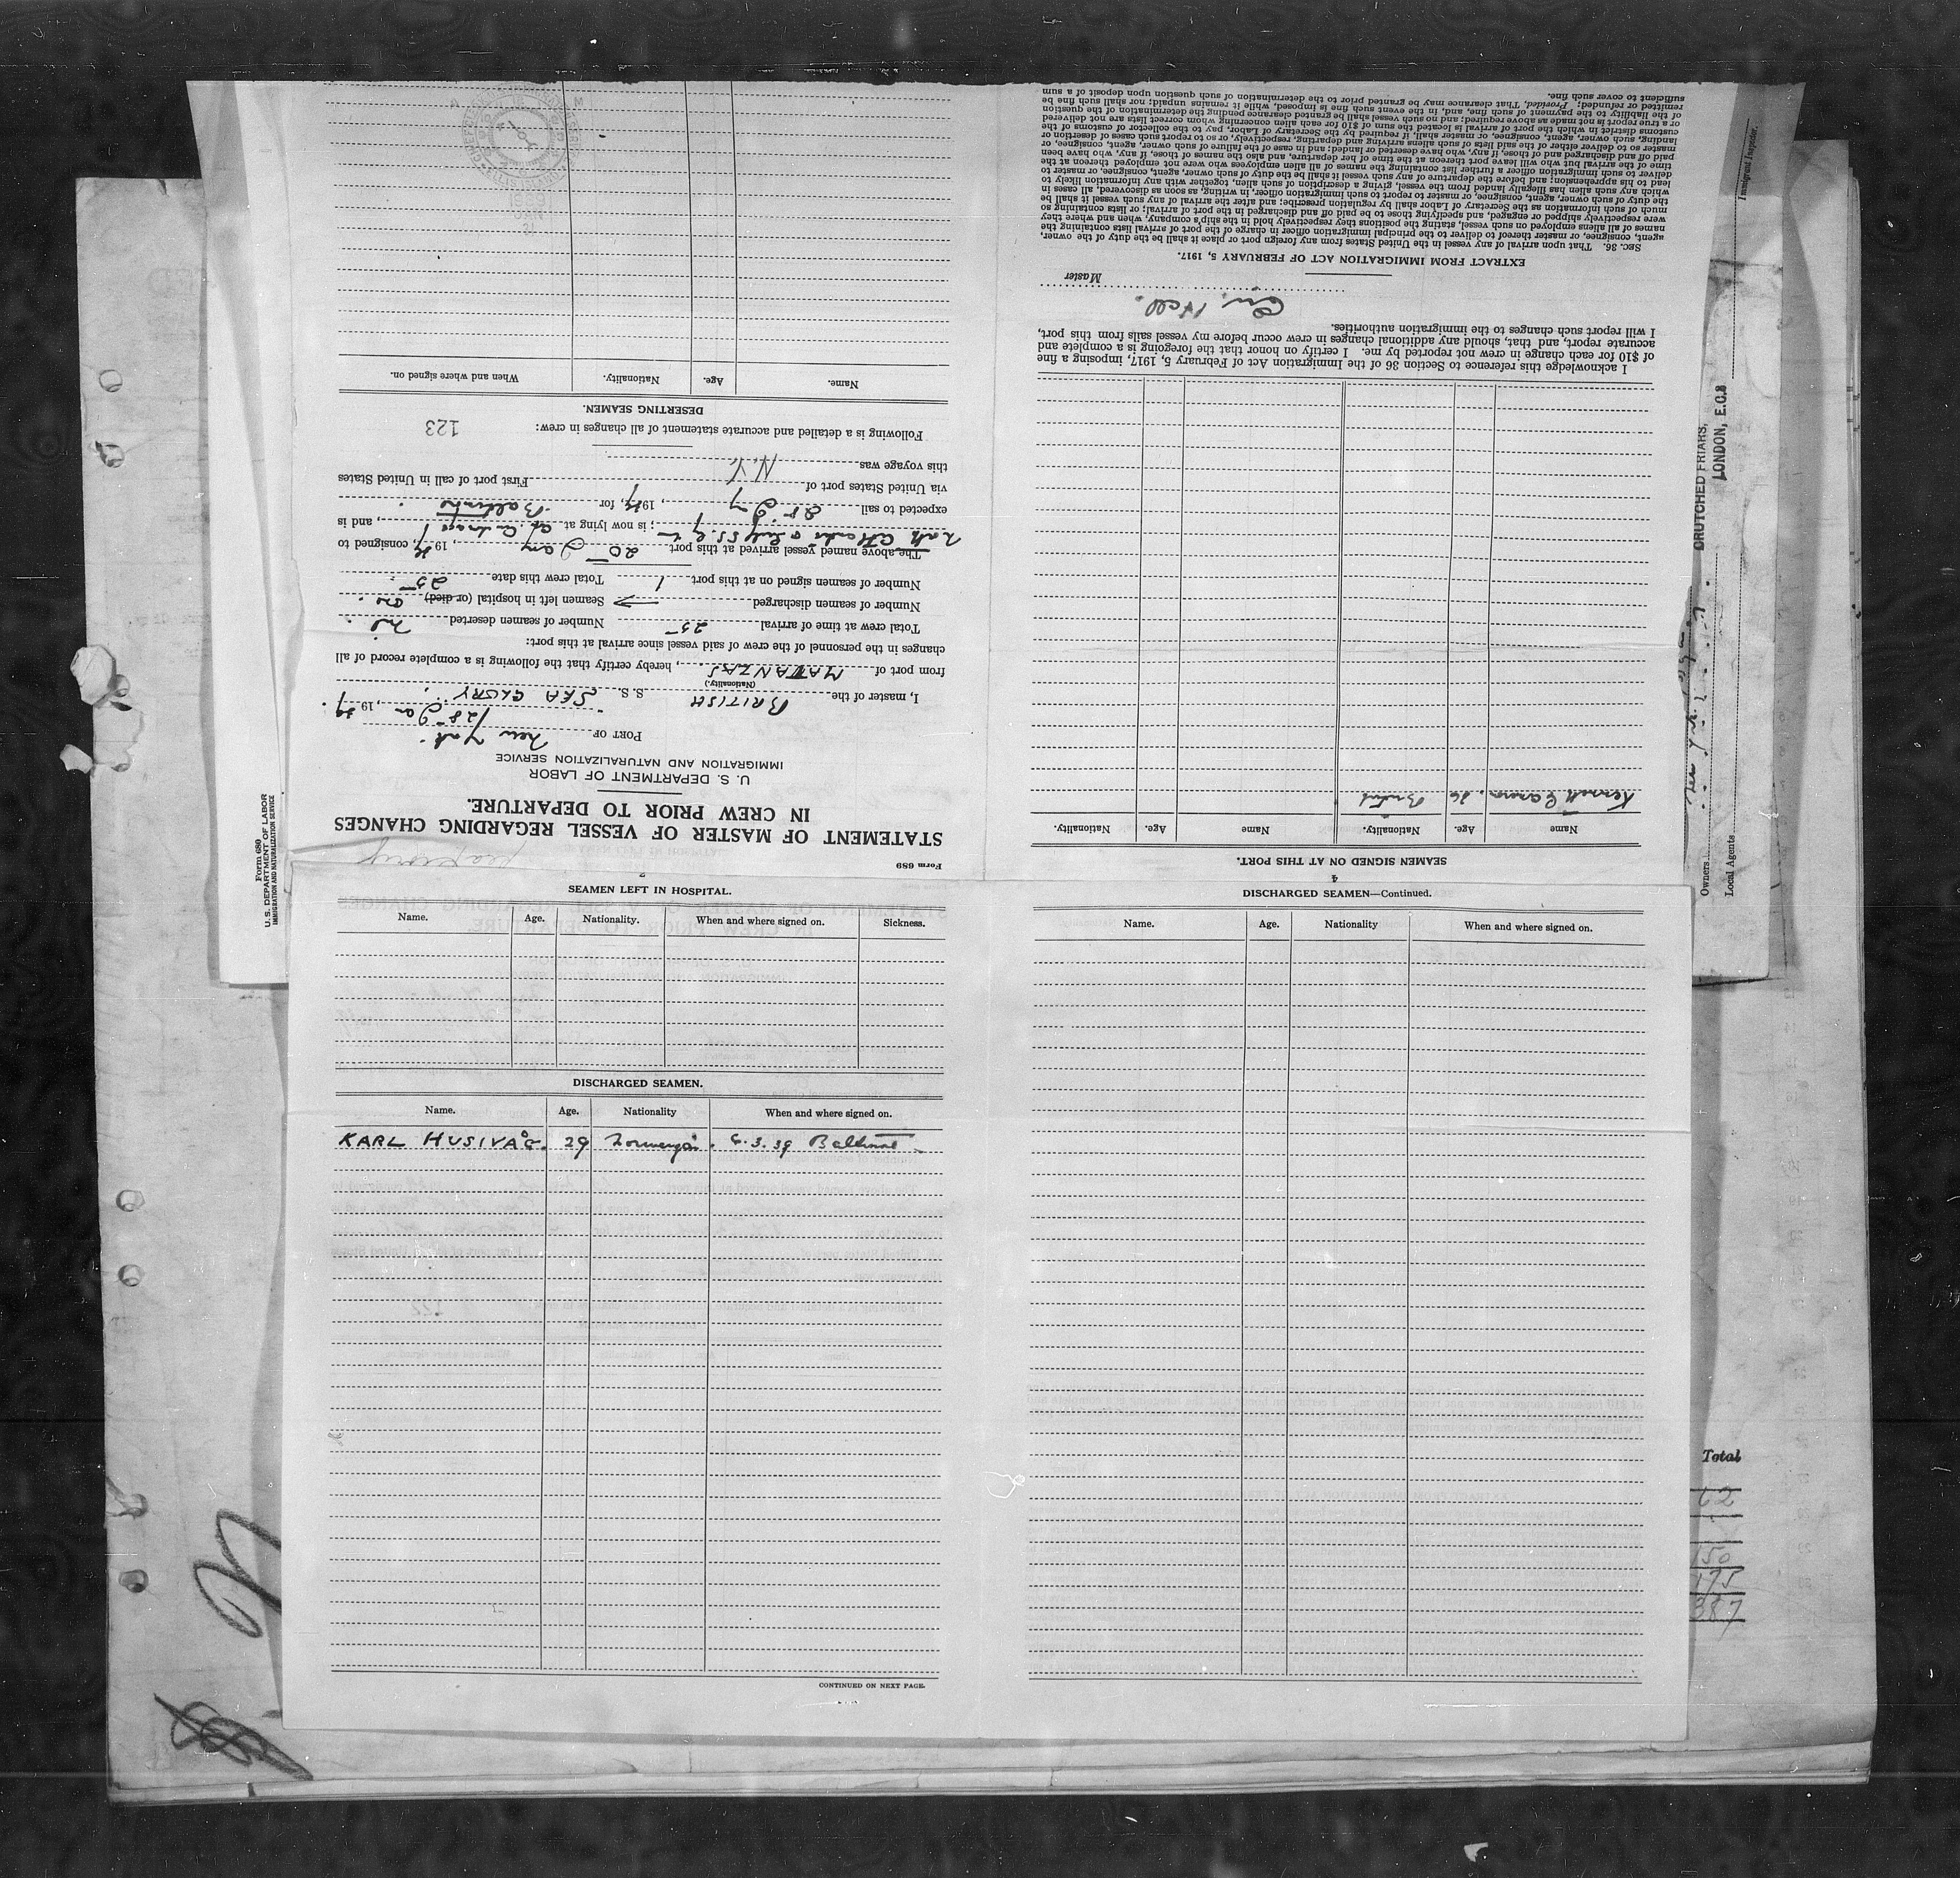 Form 689
STATEMENT OF MASTER OF VESSEL REGARDING CHANGES
IN CREW PRIOR TO DEPARTURE.
U. S. DEPARTMENT OF LABOR
IMMIGRATION AND NATURALIZATION SERVICE
PORT OF New York
28 Jan, 19
I, master of the BRITISH S. S. SEA GLORY
(Nationality.)
from port of MATANZAS, hereby certify that the following is a complete record of all
changes in the personnel of the crew of said vessel since arrival at this port:
Total crew at time of arrival 25 Number of seamen deserted nil
Number of seamen discharged Seamen left in hospital (or died)
Number of seamen signed on at this port 1 Total crew this date 25
The above named vessel arrived at this port 20 Jan, 19, consigned to
; is now lying at, and is
expected to sail 28, 19, for Baltimore
via United States port of First port of call in United States
this voyage was N.Y.
Following is a detailed and accurate statement of all changes in crew: 123
DESERTING SEAMEN.
Name. Age. Nationality. When and where signed on.
4
SEAMEN SIGNED ON AT THIS PORT.
Name Age. Nationality. Name Age. Nationality.
Kenneth 26. British
I acknowledge this reference to Section 36 of the Immigration Act of February 5, 1917, imposing a fine
of $10 for each change in crew not reported by me. I certify on honor that the foregoing is a complete and
accurate report, and that, should any additional changes in crew occur before my vessel sails from this port,
I will report such changes to the immigration authorities.
Master
EXTRACT FROM IMMIGRATION ACT OF FEBRUARY 5, 1917.
SEC. 36. That upon arrival of any vessel in the United States from any foreign port or place it shall be the duty of the owner,
agent, consignee, or master thereof to deliver to the principal immigration officer in charge of the port of arrival lists containing the
names of all aliens employed on such vessel, stating the positions they respectively hold in the ship's company, when and where they
were respectively shipped or engaged, and specifying those to be paid off and discharged in the port of arrival; or lists containing so
much of such information as the Secretary of Labor shall by regulation prescribe; and after the arrival of any such vessel it shall be
the duty of such owner, agent, consignee, or master to report to such immigration officer, in writing, as soon as discovered, all cases in
which any such alien has illegally landed from the vessel, giving a description of such alien, together with any information likely to
lead to his apprehension; and before the departure of any such vessel it shall be the duty of such owner, agent, consignee, or master to
deliver to such immigration officer a further list containing the names of all alien employees who were not employed thereon at the
time of the arrival but who will leave port thereon at the time of her departure, and also the names of those, if any, who have been
paid off and discharged and of those, if any, who have deserted or landed; and in case of the failure of such owner, agent, consignee, or
master so to deliver either of the said lists of such aliens arriving and departing, respectively, or so to report such cases of desertion or
landing, such owner, agent, consignee, or master shall, if required by the Secretary of Labor, pay to the collector of customs of the
customs district in which the port of arrival is located the sum of $10 for each alien concerning whom correct lists are not delivered
or a true report is not made as above required; and no such vessel shall be granted clearance pending the determination of the question
of the liability to the payment of such fine, and, in the event such fine is imposed, while it remains unpaid; nor shall such fine be
remitted or refunded; Provided, That clearance may be granted prior to the determination of such question upon deposit of a sum
sufficient to cover such fine.
SEAMEN LEFT IN HOSPITAL.
Name. Age. Nationality. When and where signed on. Sickness.
DISCHARGED SEAMEN.
Name. Age. Nationality When and where signed on.
KARL HUSIVÅG. 29 Norwegian. 4.3.39 Baltimore
CONTINUED ON NEXT PAGE.
DISCHARGED SEAMEN—Continued.
Name. Age. Nationality When and where signed on.
Form 680
U. S. DEPARTMENT OF LABOR
IMMIGRATION AND NATURALIZATION SERVICE
Immigrant Inspector.
CRUTCHED FRIARS,
LONDON, E.C.3
Owners
Local Agents
Total
22
150
175
387